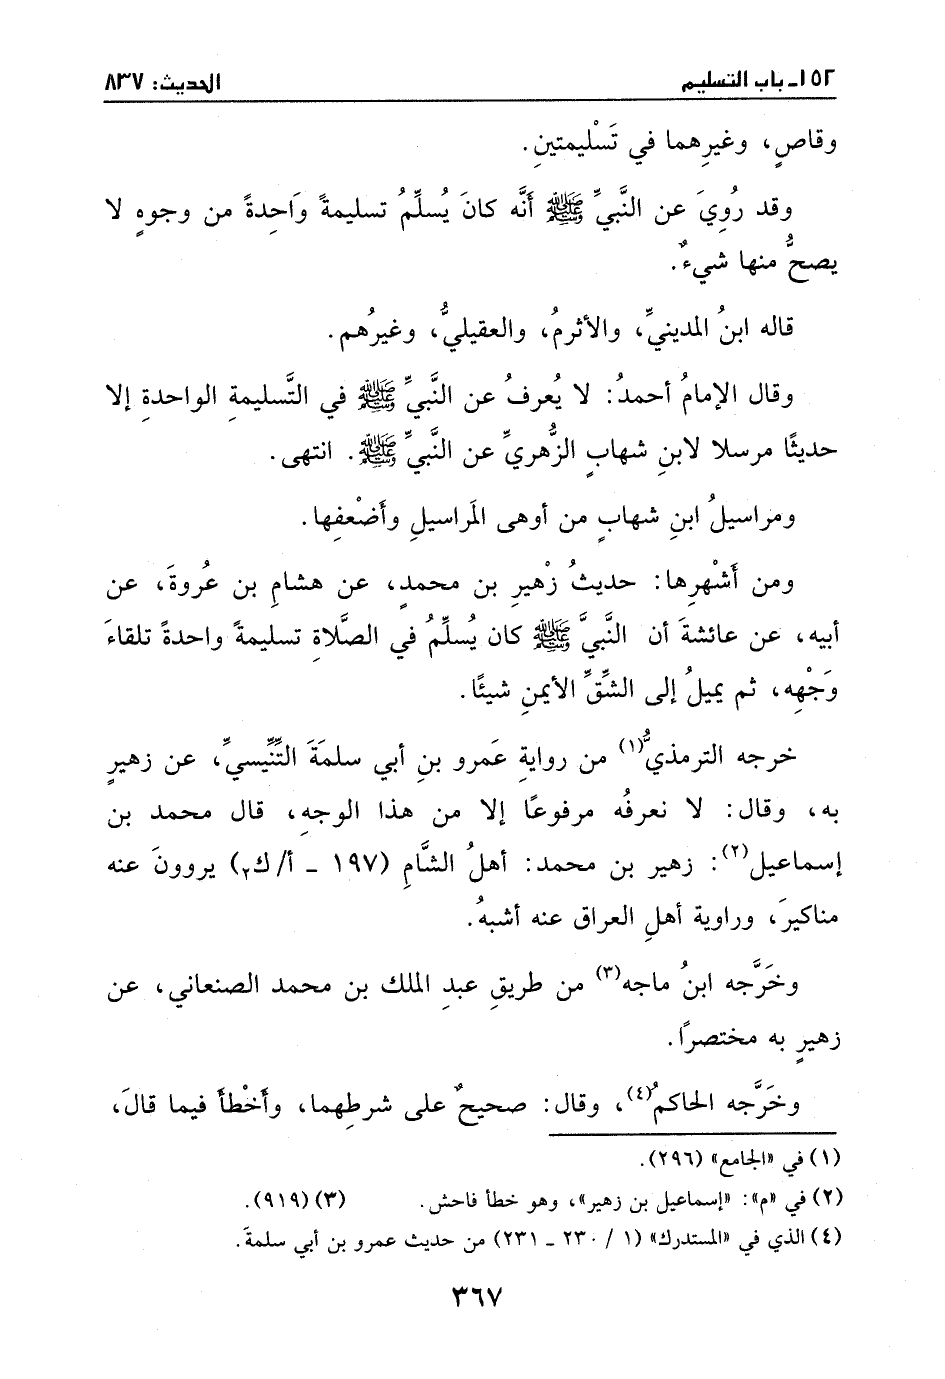 ١٥٢ـ باب التسليم
الحديث: ٨٣٧
وقاصٍ، وغيرِهما في تَسْليمتينِ.
وقد رُوِيَ عن النَّبيِّ ﷺ أنَّه كانَ يُسلِّمُ تسليمةً وَاحِدةً من وجوهٍ لا
يصحُّ منها شيءٌ.
قاله ابنُ المدينيِّ، والأثرمُ، والعقيليُّ، وغيرُهم.
وقال الإمامُ أحمدُ: لا يُعرفُ عن النَّبيِّ ﷺ في التَّسليمةِ الواحدةِ إلا
حديثًا مرسلا لابنِ شهابٍ الزُّهريِّ عن النَّبيِّ ﷺ. انتهى.
ومراسيلُ ابنِ شهابٍ من أوهى المَراسيلِ وأَضْعفِها.
ومن أَشْهرِها: حديثُ زْهيرِ بن محمدٍ، عن هشامِ بن عُروةَ، عن
أبيه، عن عائشةَ أن النَّبيَّ ﷺ كان يُسلِّمُ في الصَّلاةِ تسليمةً واحدةً تلقاءَ
وَجْهِه، ثم يميلُ إلى الشِّقِّ الأيمنِ شيئًا.
خرجه الترمذيُّ(١) من روايةِ عَمرو بنِ أبي سلمَةَ التِّنِّيسيِّ، عن زهيرٍ
به، وقال: لا نعرفُه مرفوعًا إلا من هذا الوجهِ، قال محمد بن
إسماعيل(٢): زهير بن محمد: أهلُ الشَّامِ (١٩٧ ـ أ/ك٢) يروونَ عنه
مناكيرَ، وراوية أهلِ العراق عنه أشبهُ.
وخَرَّجه ابنُ ماجه(٣) من طريقِ عبدِ الملك بن محمد الصنعاني، عن
زهيرٍ به مختصرًا.
وخَرَّجه الحاكمُ(٤)، وقال: صحيحٌ على شرطِهما، وأَخْطأَ فيما قالَ،
(١) في «الجامع» (٢٩٦).
(٢) في «م»: «إسماعيل بن زهير»، وهو خطأ فاحش. (٣) (٩١٩).
(٤) الذي في «المستدرك» (١ / ٢٣٠ ـ ٢٣١) من حديث عمرو بن أبي سلمةَ.
٣٦٧